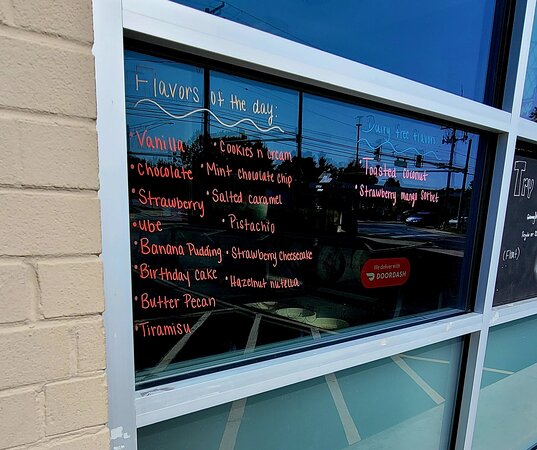 Flavors of the day:
• Vanilla
• Chocolate
• Strawberry
• ube
• Banana Pudding
• Birthday cake
• Butter Pecan
• Tiramisu
• Cookies n cream
• Mint chocolate chip
• Salted caramel
• Pistachio
• Strawberry Cheesecake
• Hazelnut nutella
Dairy free flavors
Toasted coconut
• Strawberry mango sorbet
We deliver with
DOORDASH
Try